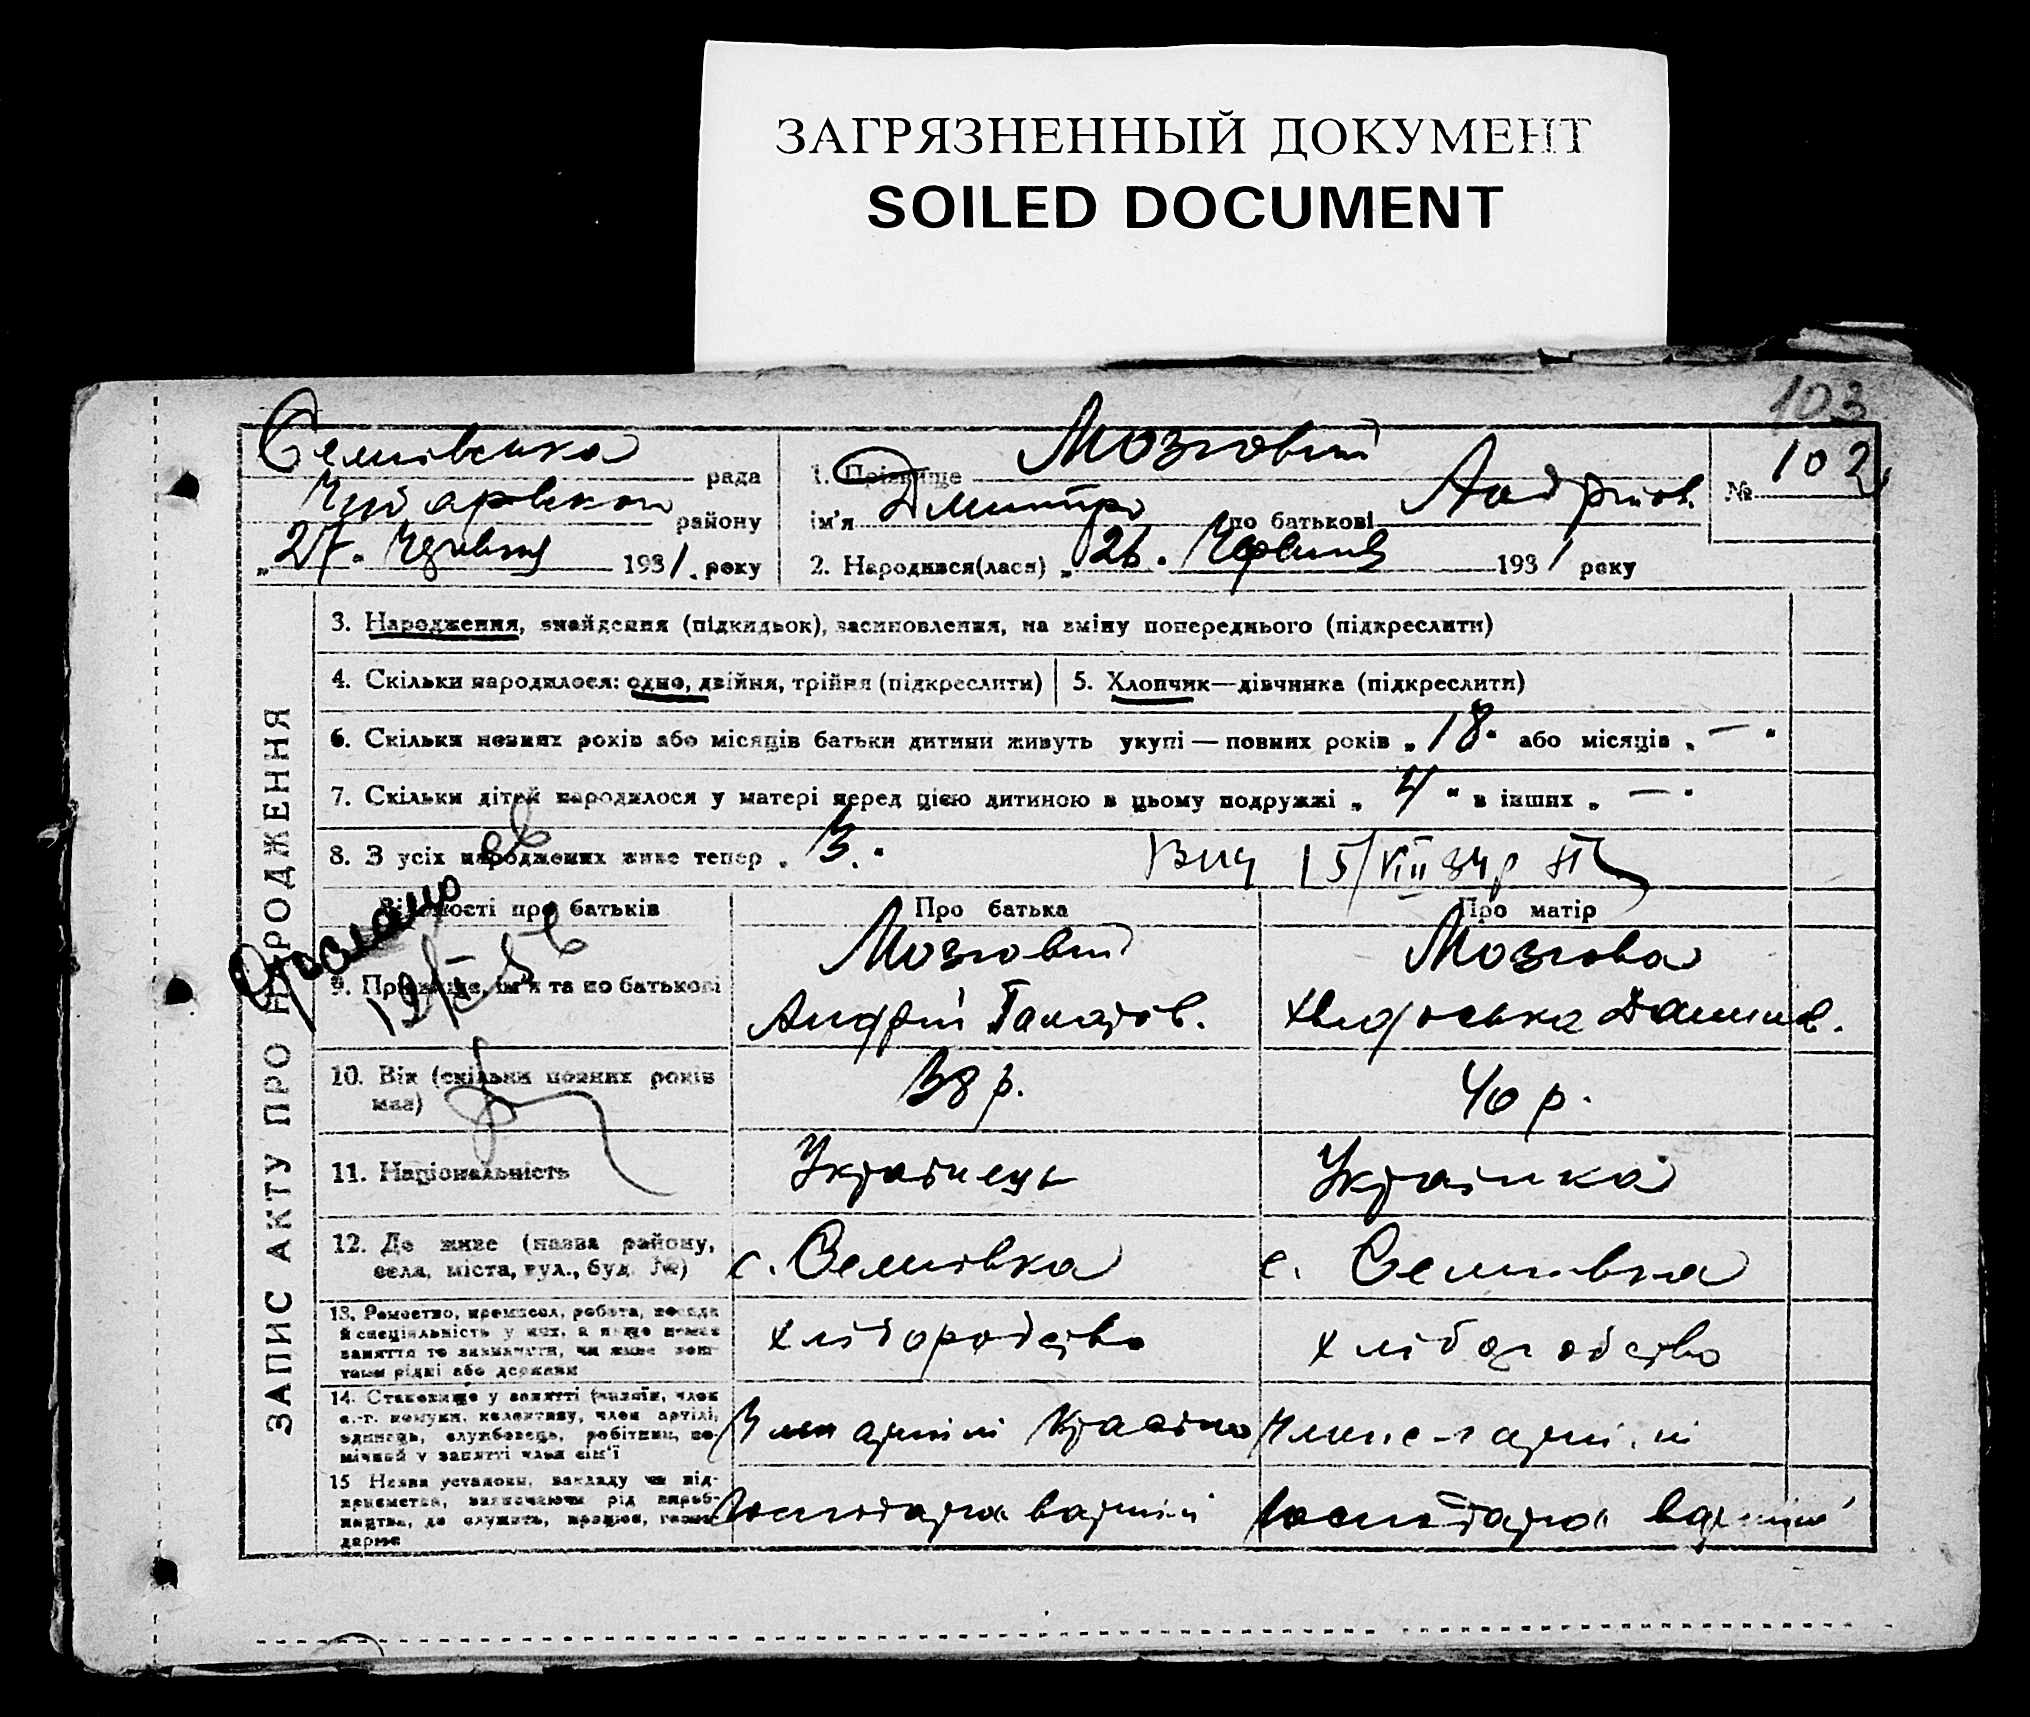 ЗАГРЯЗНЕННЫЙ ДОКУМЕНТ
SOILED DOCUMENT
103
Семнівська рада
району
„27" Червня 1931 року
1. Прізвище Мозговий
ім'я Дмитро по батькові Андріїов.
№ 102
2. Народився(лася) „26" Червня 1931 року
ЗАПИС АКТУ ПРО НАРОДЖЕННЯ
3. Народження, знайдення (підкидьок), засиновлення, на зміну попереднього (підкреслити)
4. Скільки народилося: одно, двійня, трійня (підкреслити)
5. Хлопчик—дівчинка (підкреслити)
6. Скільки повних років або місяців батьки дитини живуть укупі — повних років „18" або місяців „—"
7. Скільки дітей народилося у матері перед цією дитиною в цьому подружжі „4" в інших „—"
8. З усіх народжених живе тепер „3."
15/VIII 34р
Відомості про батьків
Про батька
Про матір
9. Прізвище, ім'я та по батькові
Мозговий
Андрій
Мозгова
10. Вік (скільки повних років має)
38 р.
40 р.
11. Національність
Українець
Українка
12. Де живе (назва району, села, міста, вул., буд. №)
с. Семнівка
с. Семнівка
13. Ремество, промисел, робота, посада й спеціяльність у них, а якщо немає заняття то зазначити, чи живе коштами рідні або держави
хліборобство
хліборобство
14. Становище у занятті (хазяїн, член с.-г. комуни, колективу, член артілі, одинець, службовець, робітник, помічний у занятті член сім'ї
15 Назва установи, закладу чи підприємства, зазначаючи рід виробництва, де служить, працює, господарює